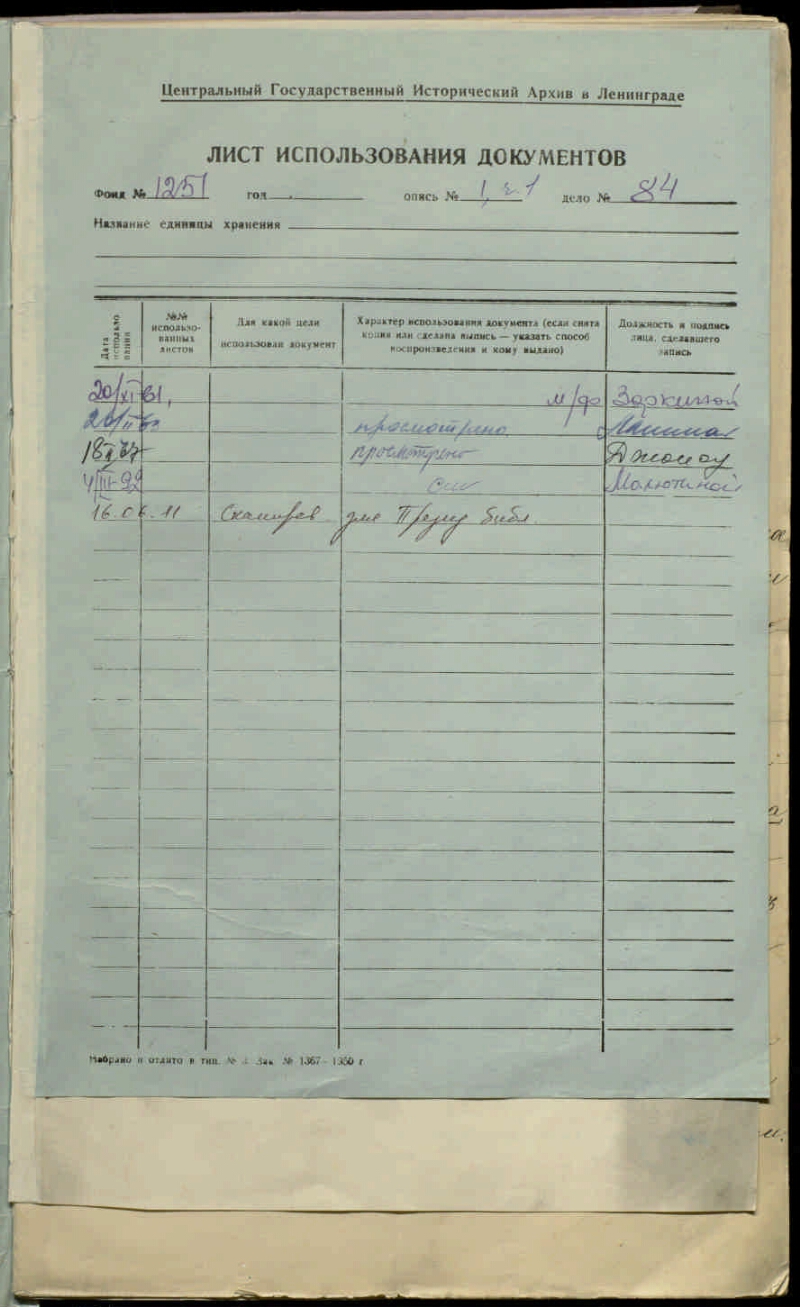 Центральный Государственный Исторический Архив в Ленинграде
ЛИСТ ИСПОЛЬЗОВАНИЯ ДОКУМЕНТОВ
Фонд № 1251 год опись № 1, ч. 1 дело № 84
Название единицы хранения
Дата использования
№№ использо-
ванных
листов
Для какой цели
использован документ
Характер использования документа (если снята
копия или сделана выпись — указать способ
воспроизведения и кому выдано)
Должность и подпись
лица, сделавшего
запись
20/XI 61, м/ф Заркиной
просмотрено
просмотрено
4/III-92 Малютиной
16.06.11 Сканиров для През библ.
Набрано и отлито в тип. № Зак. № 1367 - 1950 г